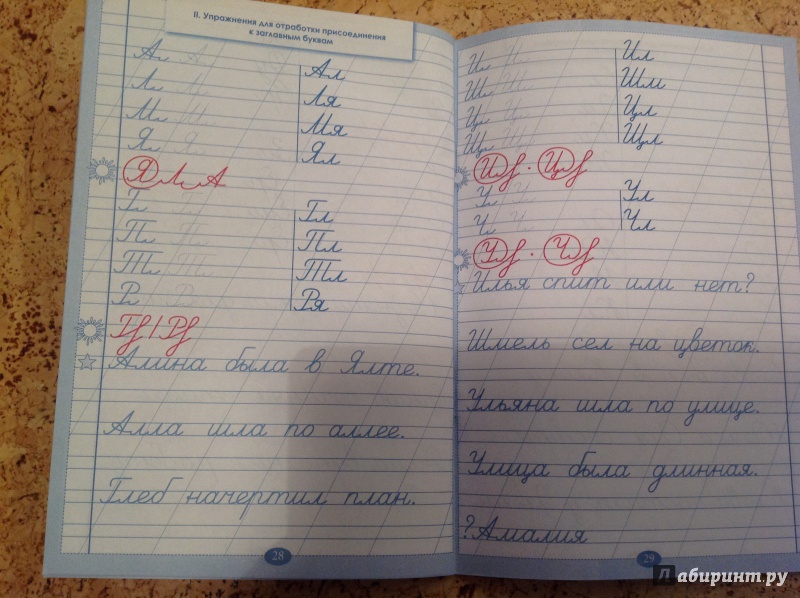 II. Упражнения для отработки присоединения
к заглавным буквам
Ал А Ал
Лл Л Ля
Мл М Мя
Ял Я Ял
Я Л А
Гл Г Гл
Пл П Пл
Тл Т Тл
Рл Р Ря
Г / Р
Алина была в Ялте.
Алла шла по аллее.
Глеб начертил план.
28
Ил И Ил
Шл Ш Шл
Цл Ц Цл
Щл Щ Щл
И · Ц
Ул У Ул
Чл Ч Чл
У · Ч
Илья спит или нет?
Шмель сел на цветок.
Ульяна шла по улице.
Улица была длинная.
?Амалия
29
Лабиринт.ру